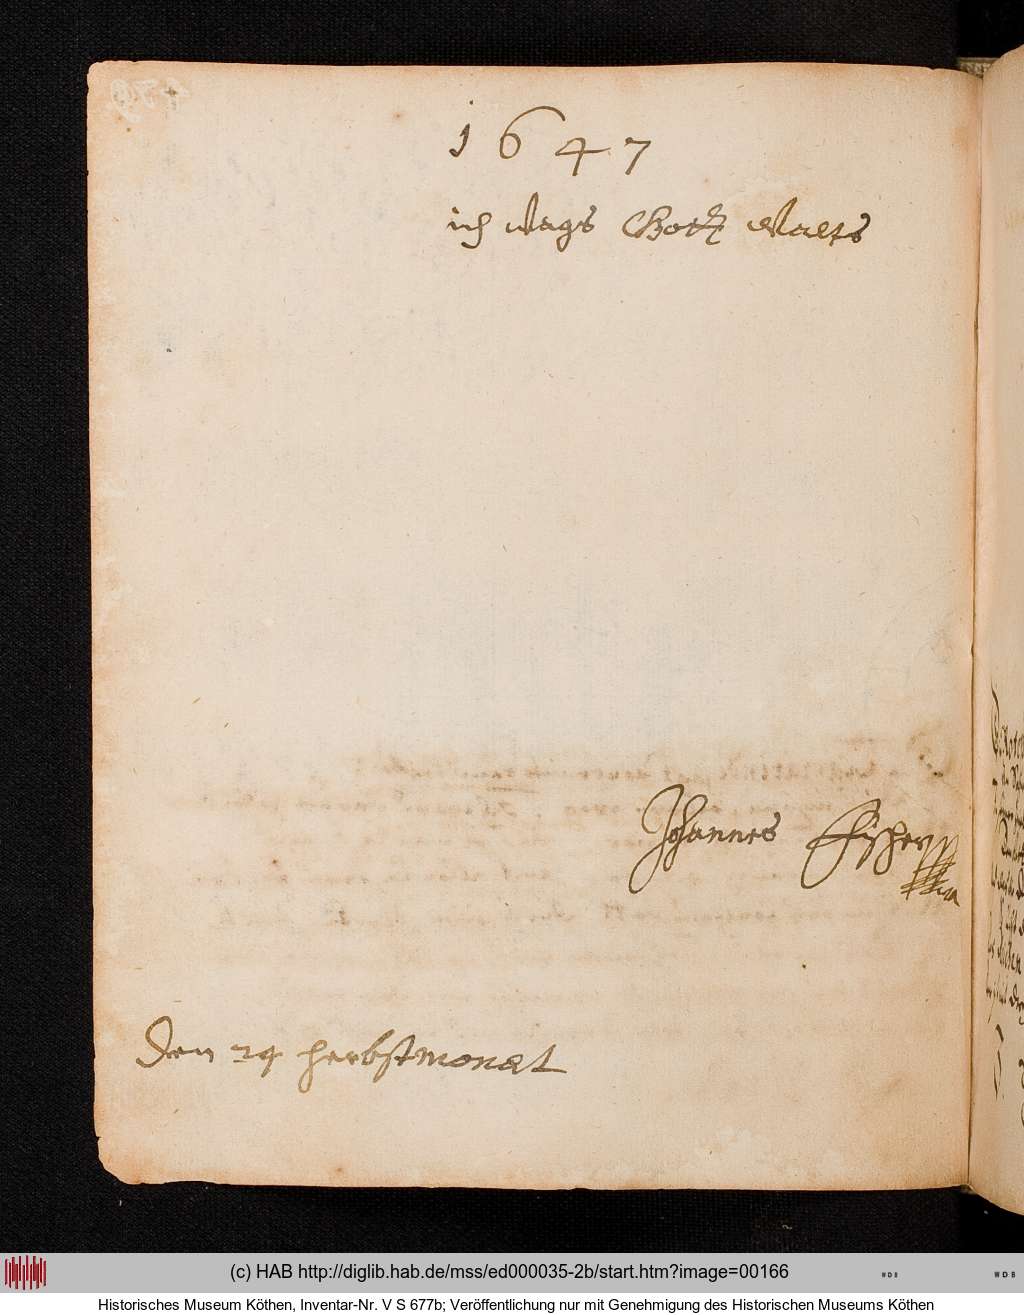 1647
ich wags Gott walts
Johannes Fischer
Den 24 herbstmonat
(c) HAB http://diglib.hab.de/mss/ed000035-2b/start.htm?image=00166
WDB
WDB
Historisches Museum Köthen, Inventar-Nr. V S 677b; Veröffentlichung nur mit Genehmigung des Historischen Museums Köthen